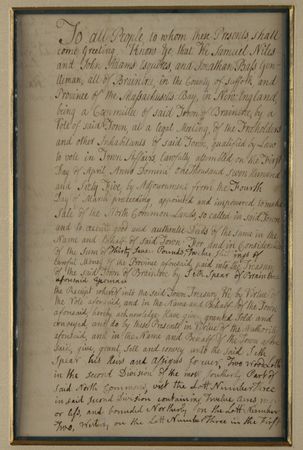 To all People to whom these Presents shall
come Greeting. Know Ye that We Samuel Niles
and John Adams Esquires and Jonathan Bass Gen-
tleman, all of Braintree, in the County of Suffolk and
Province of the Massachusetts Bay, in New England
being a Committee of said Town of Braintree, by a
Vote of said Town, at a legal Meeting of the Freeholders
and other Inhabitants of said Town, qualified by Law
to vote in Town Affairs, lawfully assembled on the First
Day of April Anno Domini One thousand seven hundred
and Sixty Five, by Adjournment from the Fourth
Day of March preceeding, appointed and impowered to make
Sale of the North Common Lands, so called, in said Town
and to execute good and authentic Deeds of the same in the
Name and Behalf of said Town: For and in Consideration
of the Sum of Thirty four Pounds Twelve Shillings of
lawful Money of the Province aforesaid paid into the Treasury
of the said Town of Braintree by Seth Spear of Braintree
aforesaid Yeoman
the Receipt whereof into the said Town Treasury, We by Virtue of
the Vote aforesaid, and in the Name and Behalf of the Town
aforesaid, hereby acknowledge, have given, granted, sold and
conveyed, and do by these Presents in Virtue of the Authority
aforesaid, and in the Name and Behalf of the Town afore-
said, give, grant, sell and convey unto the said Seth
Spear his Heirs and assigns forever, Two Wood Lotts
in the second Division of the most Southerly Part of
said North Commons, vizt the Lott Number Three
in said second Division containing Twelve acres more
or less, and bounded Northerly on the Lott Number
Two, Westerly on the Lott Number Three in the First